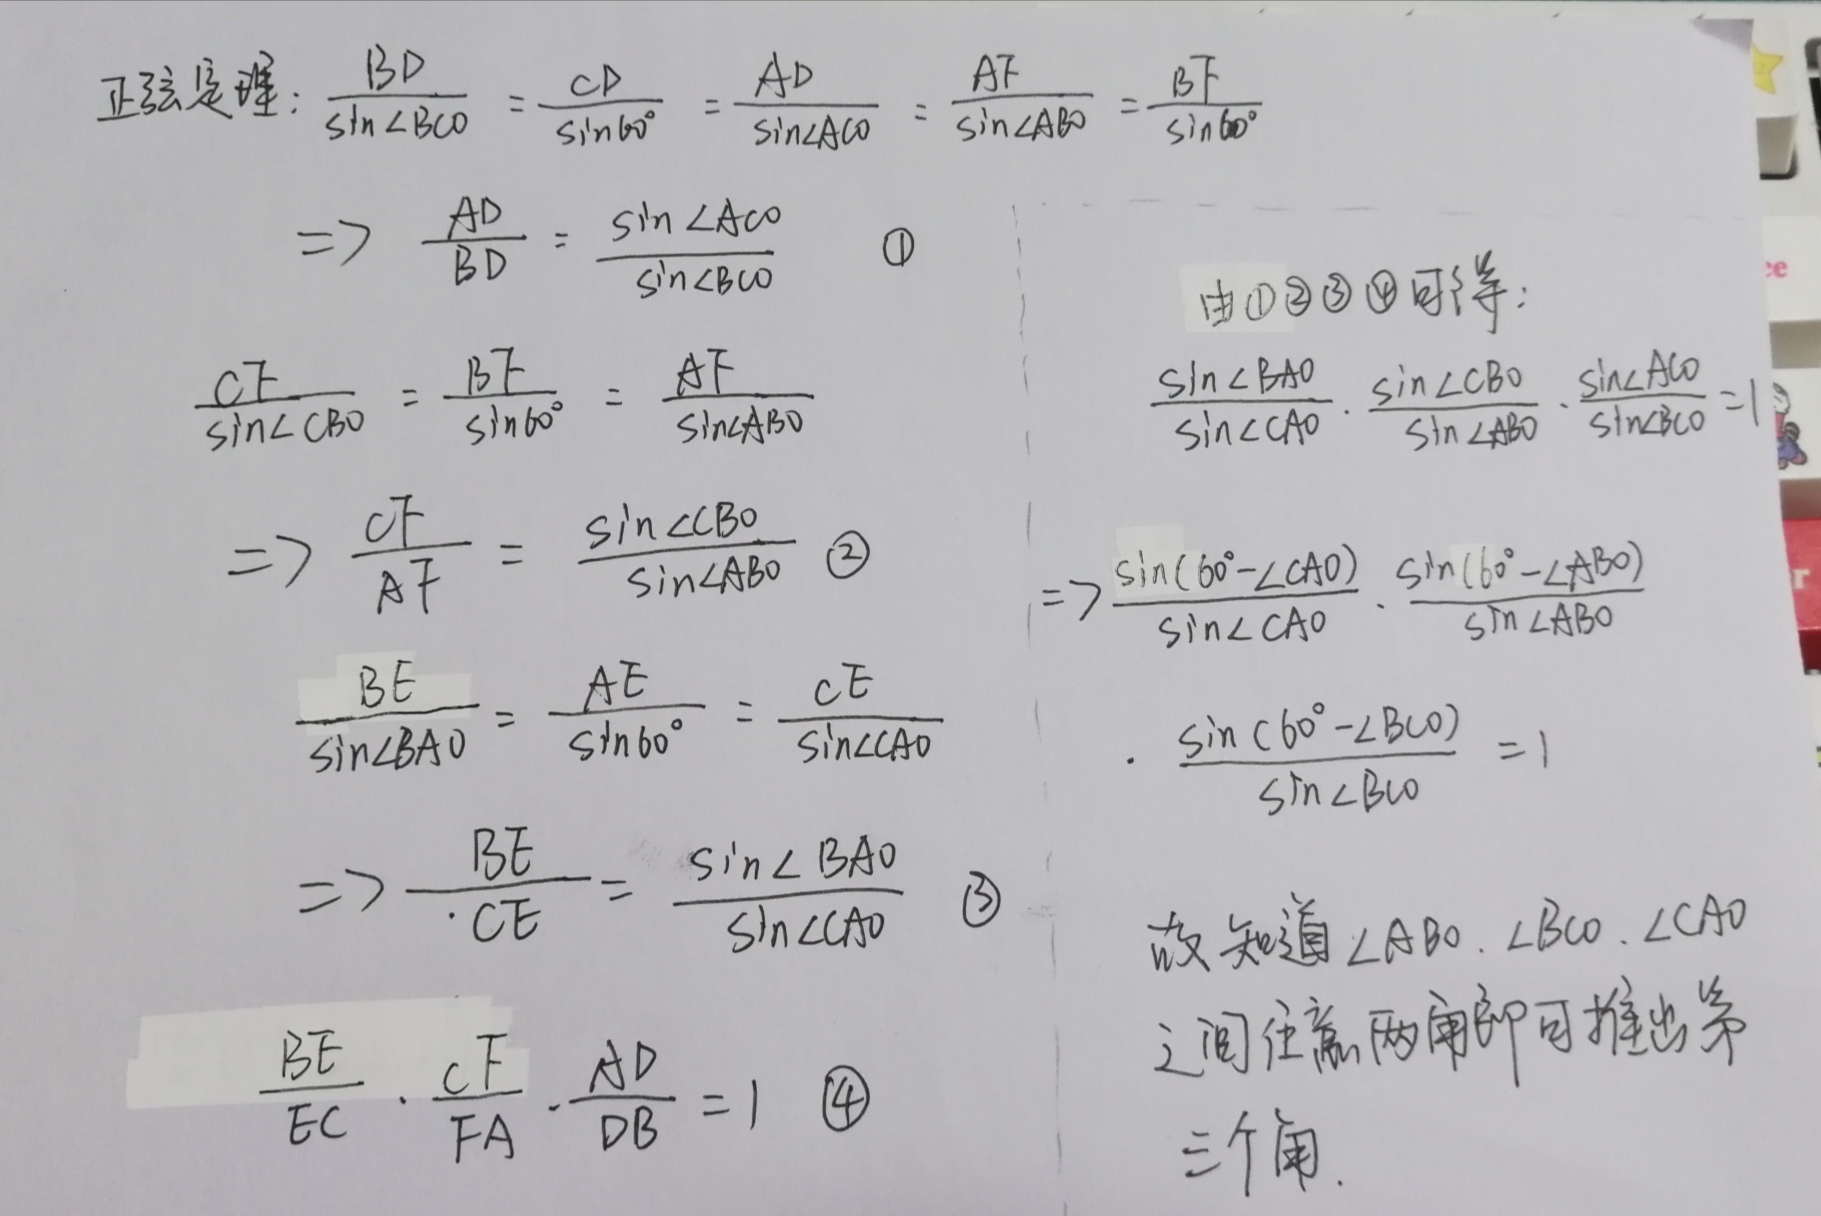 正弦定理: BD/sin∠BCO = CD/sin60° = AD/sin∠ACO = AF/sin∠ABO = BF/sin60°
=> AD/BD = sin∠ACO/sin∠BCO ①
CF/sin∠CBO = BF/sin60° = AF/sin∠ABO
=> CF/AF = sin∠CBO/sin∠ABO ②
BE/sin∠BAO = AE/sin60° = CE/sin∠CAO
=> BE/CE = sin∠BAO/sin∠CAO ③
BE/EC · CF/FA · AD/DB = 1 ④
由①②③④可得:
sin∠BAO/sin∠CAO · sin∠CBO/sin∠ABO · sin∠ACO/sin∠BCO = 1
=> sin(60°-∠CAO)/sin∠CAO · sin(60°-∠ABO)/sin∠ABO
· sin(60°-∠BCO)/sin∠BCO = 1
故知道∠ABO、∠BCO、∠CAO
之间任意两角即可推出第
三个角.